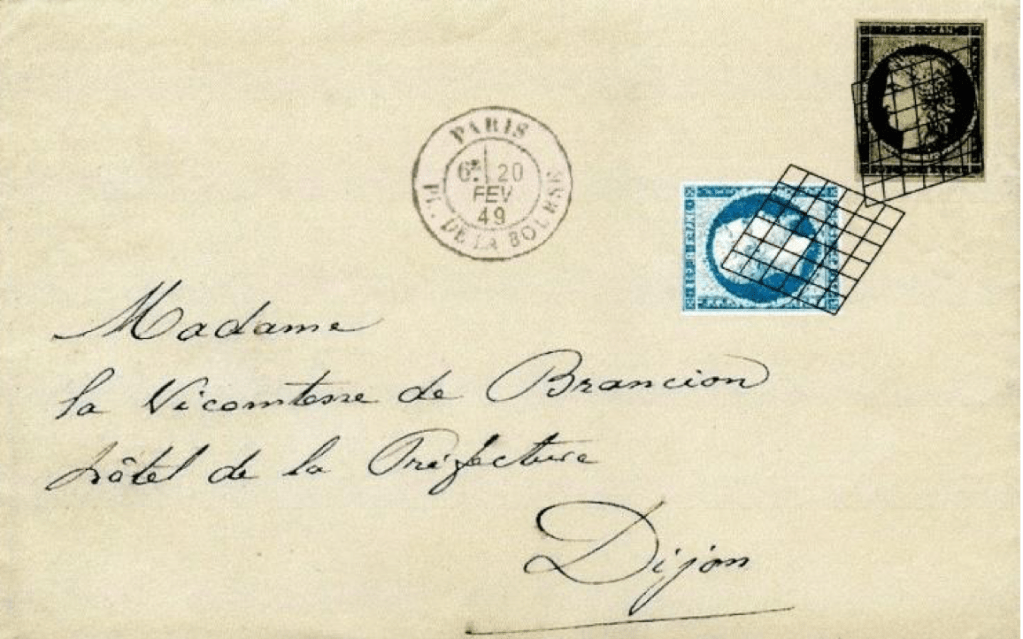 PARIS
6E 20
FEV
49
PL. DE LA BOURSE
REPUB FRANC
Madame
la Vicomtesse de Brancion
hôtel de la Préfecture
Dijon